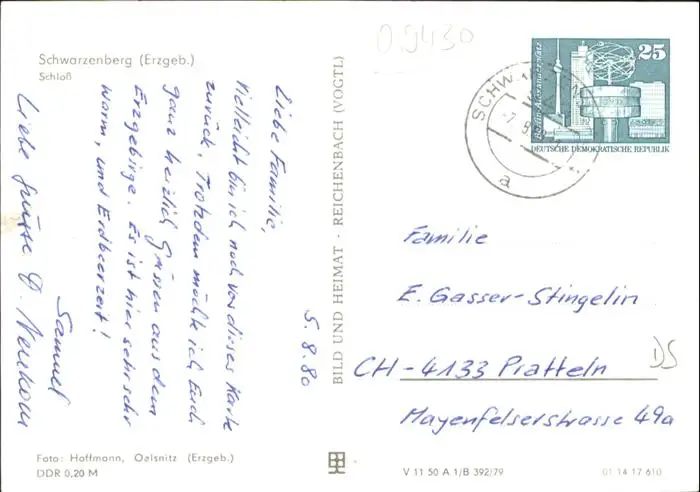 Schwarzenberg (Erzgeb.)
Schloß
5.8.80
Liebe Familie,
Vielleicht bin ich noch vor dieses Karte
zurück, Trotzdem möchte ich Euch
ganz herzlich Grüssen aus dem
Erzgebirge. Es ist hier sehr sehr
warm, und Erdbeerzeit!
Samuel
Liebe Grüsse D.
Foto: Hoffmann, Oelsnitz (Erzgeb.)
DDR 0,20 M
BILD UND HEIMAT · REICHENBACH (VOGTL)
0.9430
25
Berlin-Alexanderplatz
DEUTSCHE DEMOKRATISCHE REPUBLIK
SCHW
a
Familie
E. Gasser-Stingelin
CH-4133 Pratteln
Mayenfelserstrasse 49a
DS
V 11 50 A 1/B 392/79
01 14 17 610